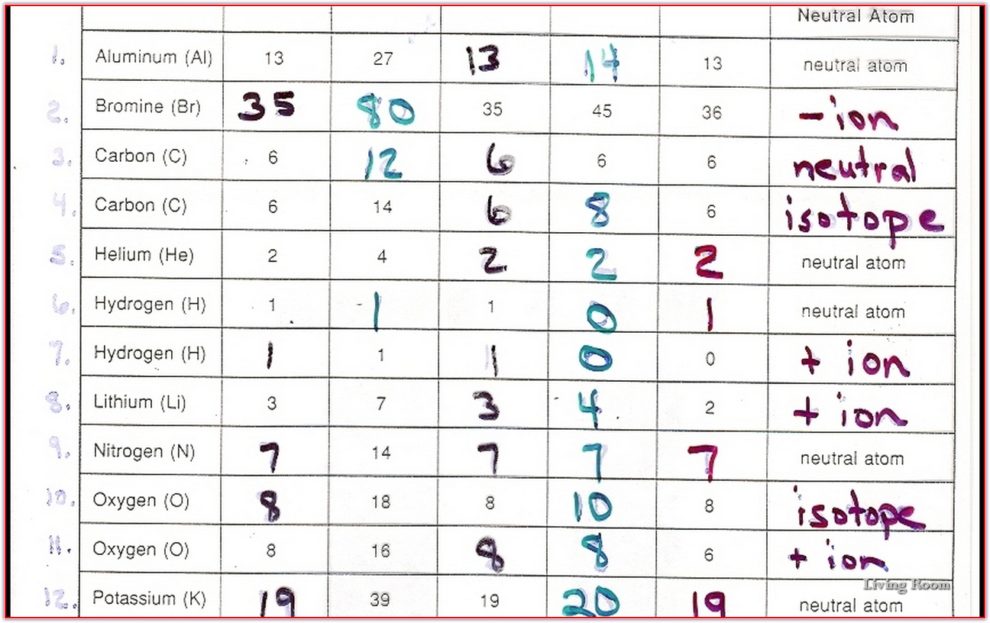 Neutral Atom
1. Aluminum (Al) 13 27 13 14 13 neutral atom
2. Bromine (Br) 35 80 35 45 36 - ion
3. Carbon (C) 6 12 6 6 6 neutral
4. Carbon (C) 6 14 6 8 6 isotope
5. Helium (He) 2 4 2 2 2 neutral atom
6. Hydrogen (H) 1 1 1 0 1 neutral atom
7. Hydrogen (H) 1 1 1 0 0 + ion
8. Lithium (Li) 3 7 3 4 2 + ion
9. Nitrogen (N) 7 14 7 7 7 neutral atom
10. Oxygen (O) 8 18 8 10 8 isotope
11. Oxygen (O) 8 16 8 8 6 + ion
Living Room
12. Potassium (K) 19 39 19 20 19 neutral atom